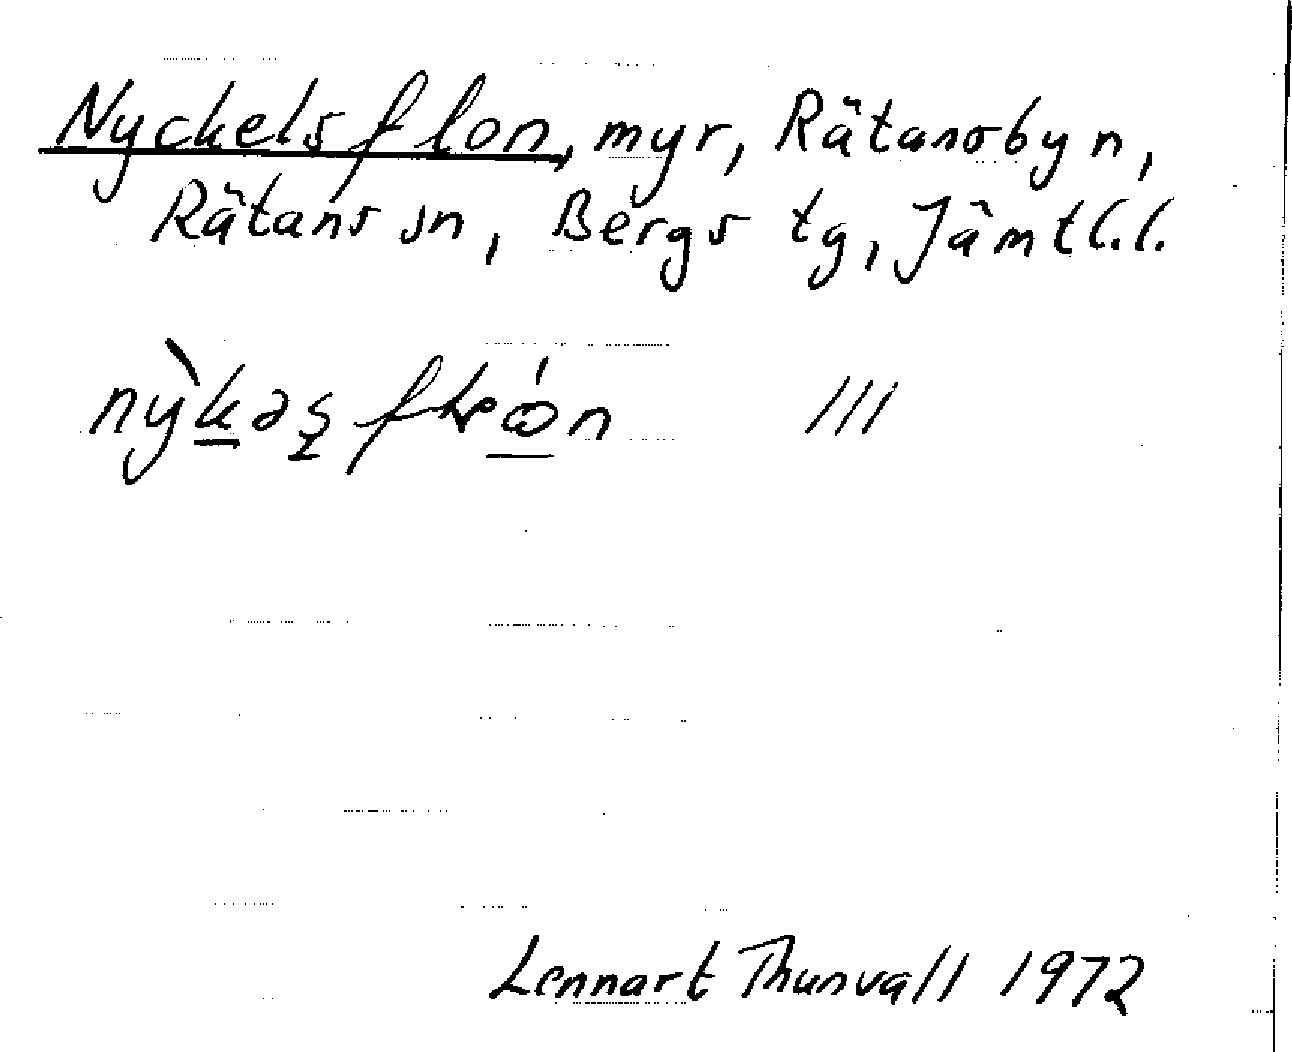 Nyckelsflon, myr, Rätansbyn,
Rätans sn, Bergs tg, Jämtl.l.
///
Lennart Thunvall 1972